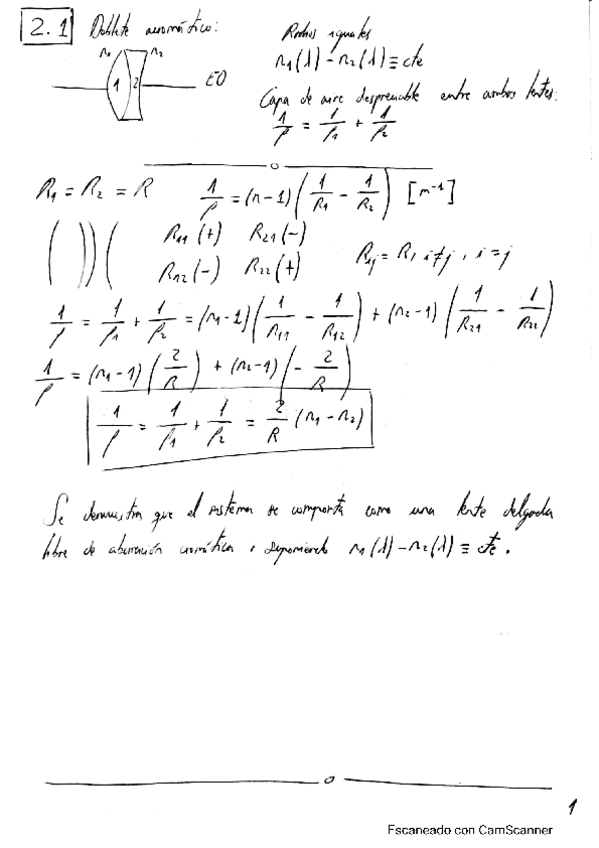 2.1 Doblete acromático: Radios iguales
n1 n2 n1(λ) - n2(λ) ≡ cte
1 2 EO Capa de aire despreciable entre ambas lentes:
1/f' = 1/f'1 + 1/f'2
R1 = R2 = R 1/f' = (n-1)(1/R1 - 1/R2) [m^-1]
R11 (+) R21 (-)
R12 (-) R22 (+) Rij = R, i≠j, i=j
1/f' = 1/f'1 + 1/f'2 = (n1-1)(1/R11 - 1/R12) + (n2-1)(1/R21 - 1/R22)
1/f' = (n1-1)(2/R) + (n2-1)(-2/R)
1/f' = 1/f'1 + 1/f'2 = 2/R (n1-n2)
Se demuestra que el sistema se comporta como una lente delgada
libre de aberración cromática, suponiendo n1(λ) - n2(λ) ≡ cte.
1
Escaneado con CamScanner